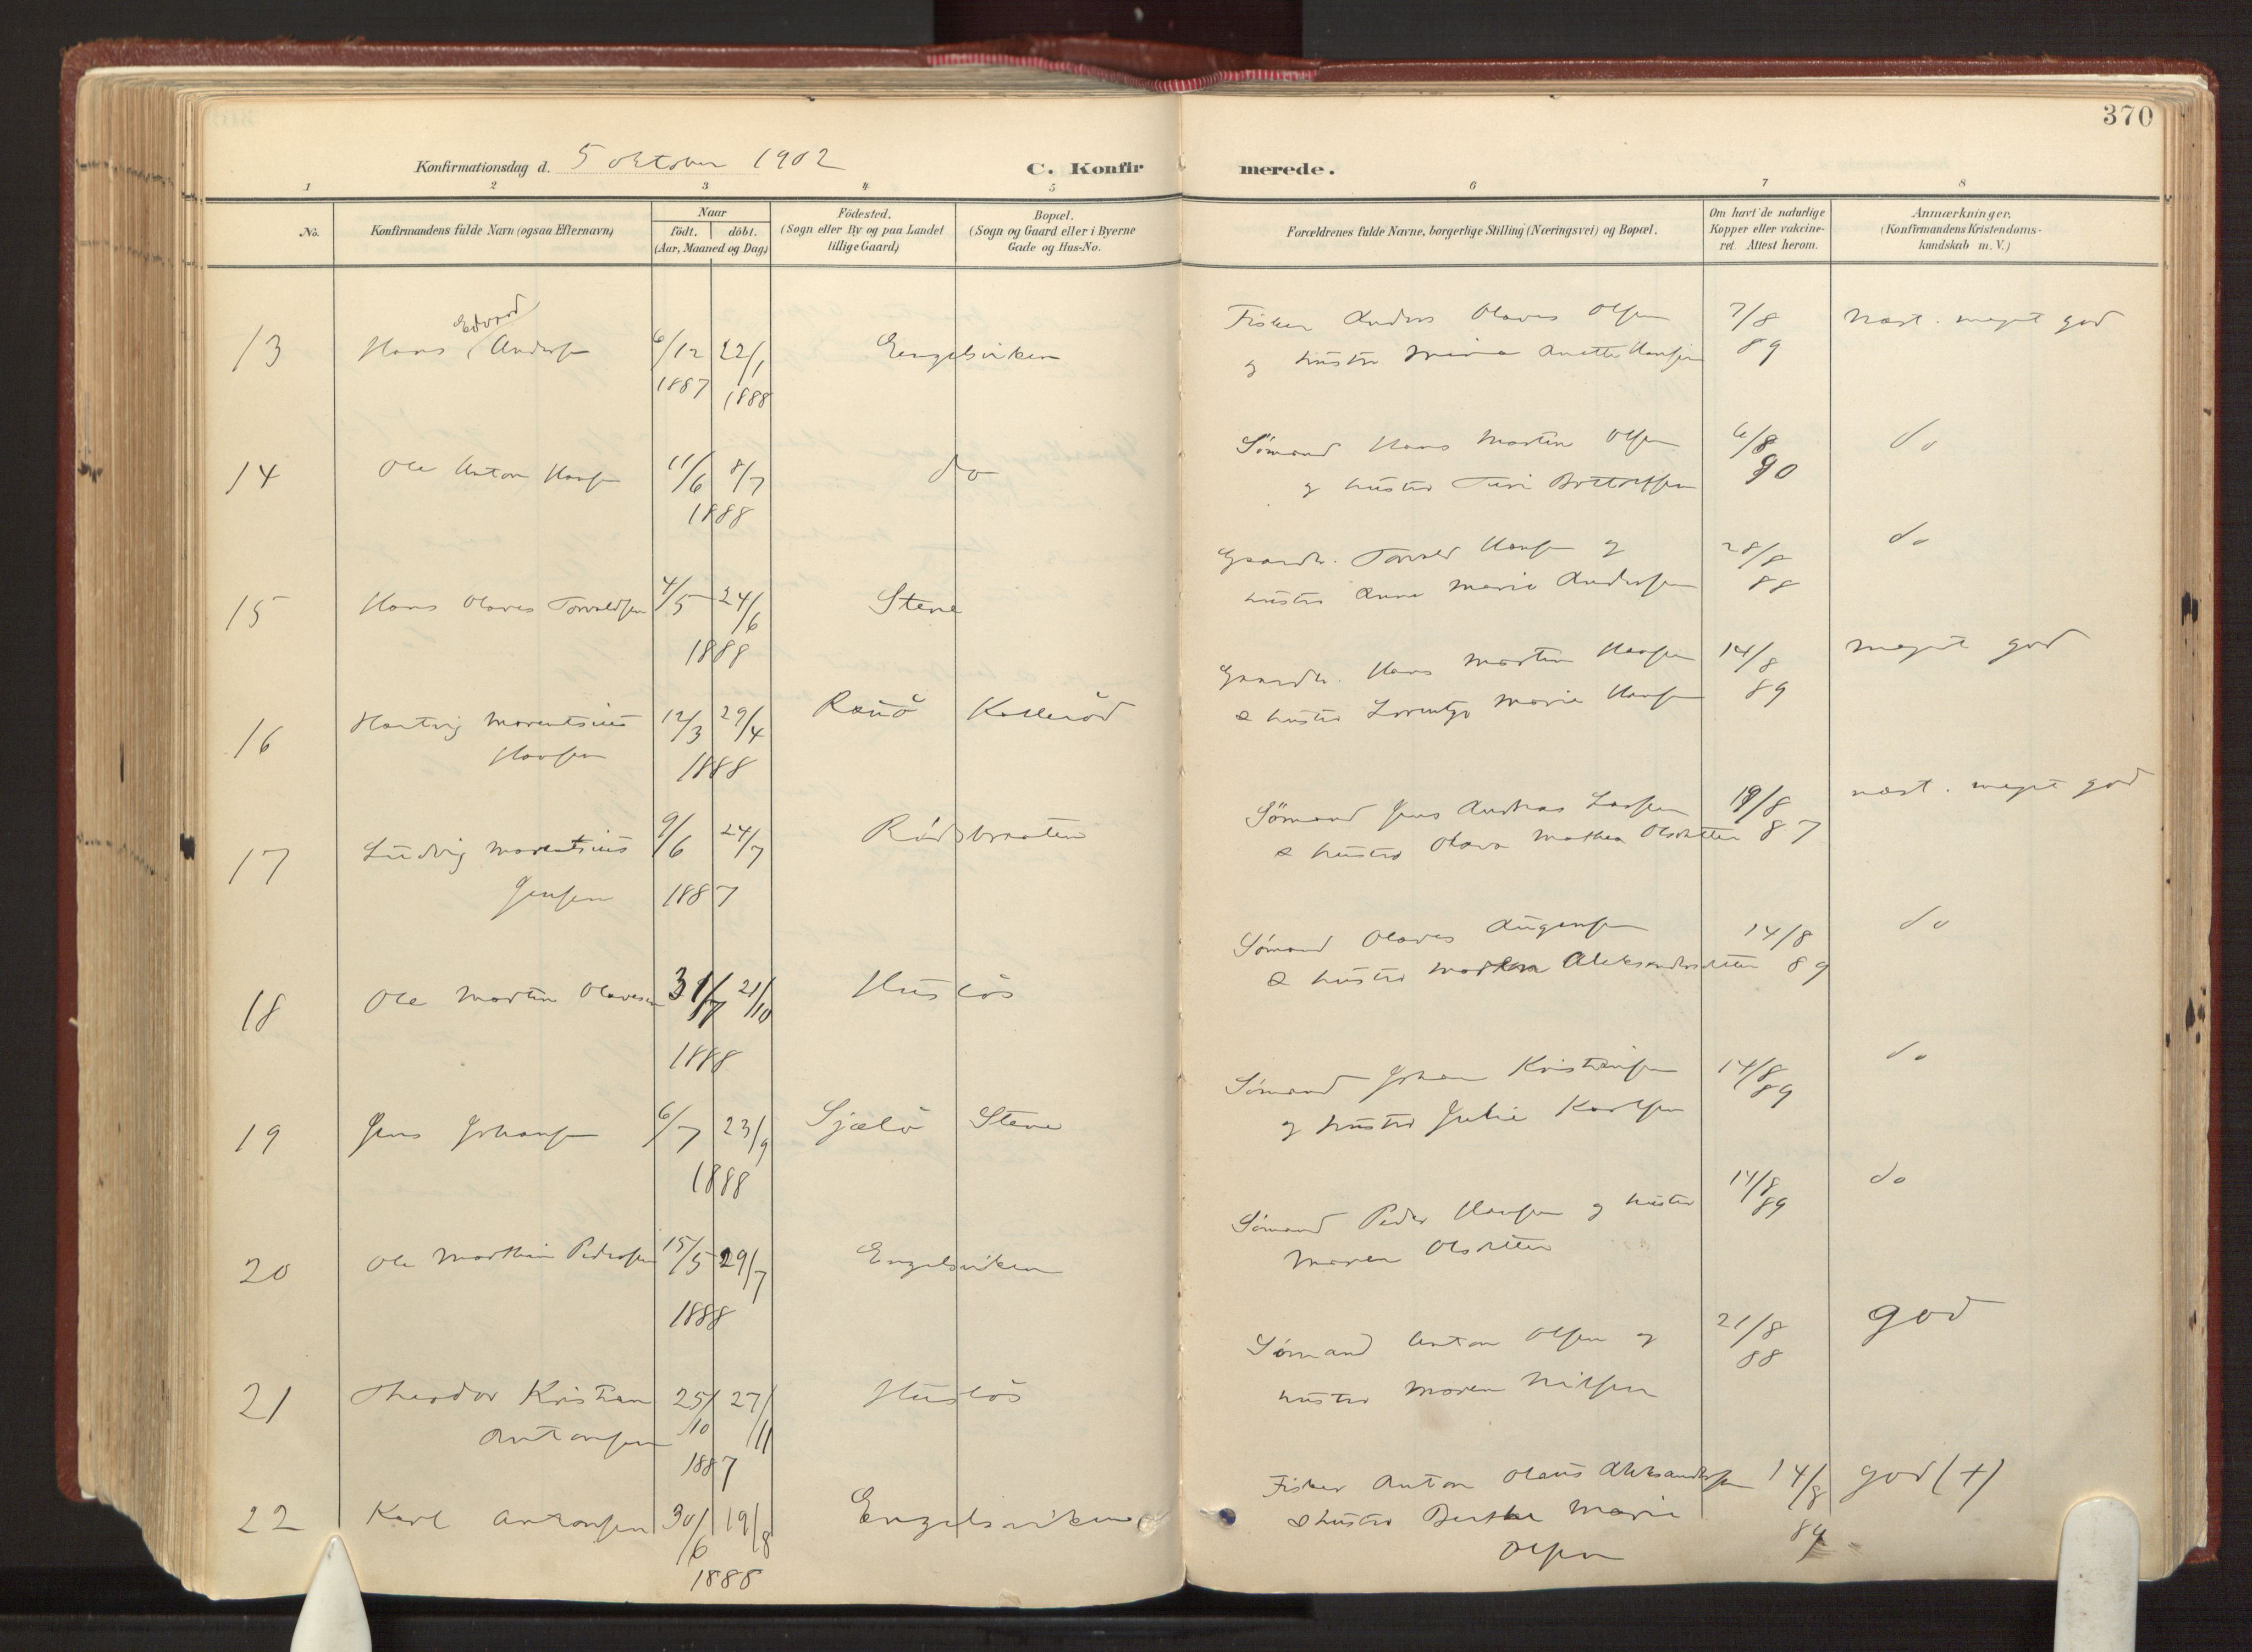 370
Konfirmationsdag d. 5 oktober 1902
C. Konfirmerede.
1 2 3 4 5 6 7 8
No.
Konfirmandens fulde Navn (ogsaa Efternavn)
Naar
født. döbt.
(Aar, Maaned og Dag)
Födested.
(Sogn eller By og paa Landet
tillige Gaard)
Bopæl.
(Sogn og Gaard eller i Byerne
Gade og Hus-No.
Forældrenes fulde Navne, borgerlige Stilling (Næringsvei) og Bopæl.
Om havt de naturlige
Kopper eller vakcine-
ret. Attest herom.
Anmærkninger.
(Konfirmandens Kristendoms-
kundskab m. V.)
Edvard
13 Hans Andersen 6/12 1887 22/1 1888 Engelsviken
Fisker Anders Olaves Olsen 7/8 89 næst. meget god
og hustru Anette Hansen
14 Ole Anton Hansen 11/6 8/7 1888 do
Sömand Hans Martin Olsen 6/8 90 do
og hustru
15 Hans Olaves Torvaldsen 4/5 24/6 1888 Stene
Gaardbr. Torvald Hansen og 28/8 88 do
hustru Anne Marie Andersen
16 Hartvig Marentsius 12/3 29/4 1888 Raüö Kalleröd
Hansen
Gaardbr. Hans Martin Hansen 14/8 89 meget god
& hustru Lorentze Marie Hansen
17 Ludvig Marentsius 9/6 24/7 1887 Rödsbraaten
Jensen
Sömand Jens Andreas Larsen 19/8 87 næst. meget god
& hustru Olava Mathea Olsdatter
18 Ole Martin Olavesen 31/7 21/10 1888 Huslös
Sömand Olaves Augensen 14/8 89 do
& hustru Aleksandersdatter
19 Jens Johansen 6/7 23/9 1888 Sjælö Stene
Sömand Johan Kristiansen 14/8 89 do
og hustru Julie Karlsen
20 Ole Marthin Pedersen 15/5 29/7 1888 Engelsviken
Sömand Peder Hansen og hustru 14/8 89 do
Maren Olsdatter
21 Theodor Kristian 25/10 27/11 1887 Huslös
Antonsen
Sömand Anton Olsen og 21/8 88 god
hustru Maren Nilsen
22 Karl Antonsen 30/6 19/8 1888 Engelsviken
Fisker Anton Olaus Aleksandersen 14/8 89 god (+)
& hustru Berthe Marie
Olsen